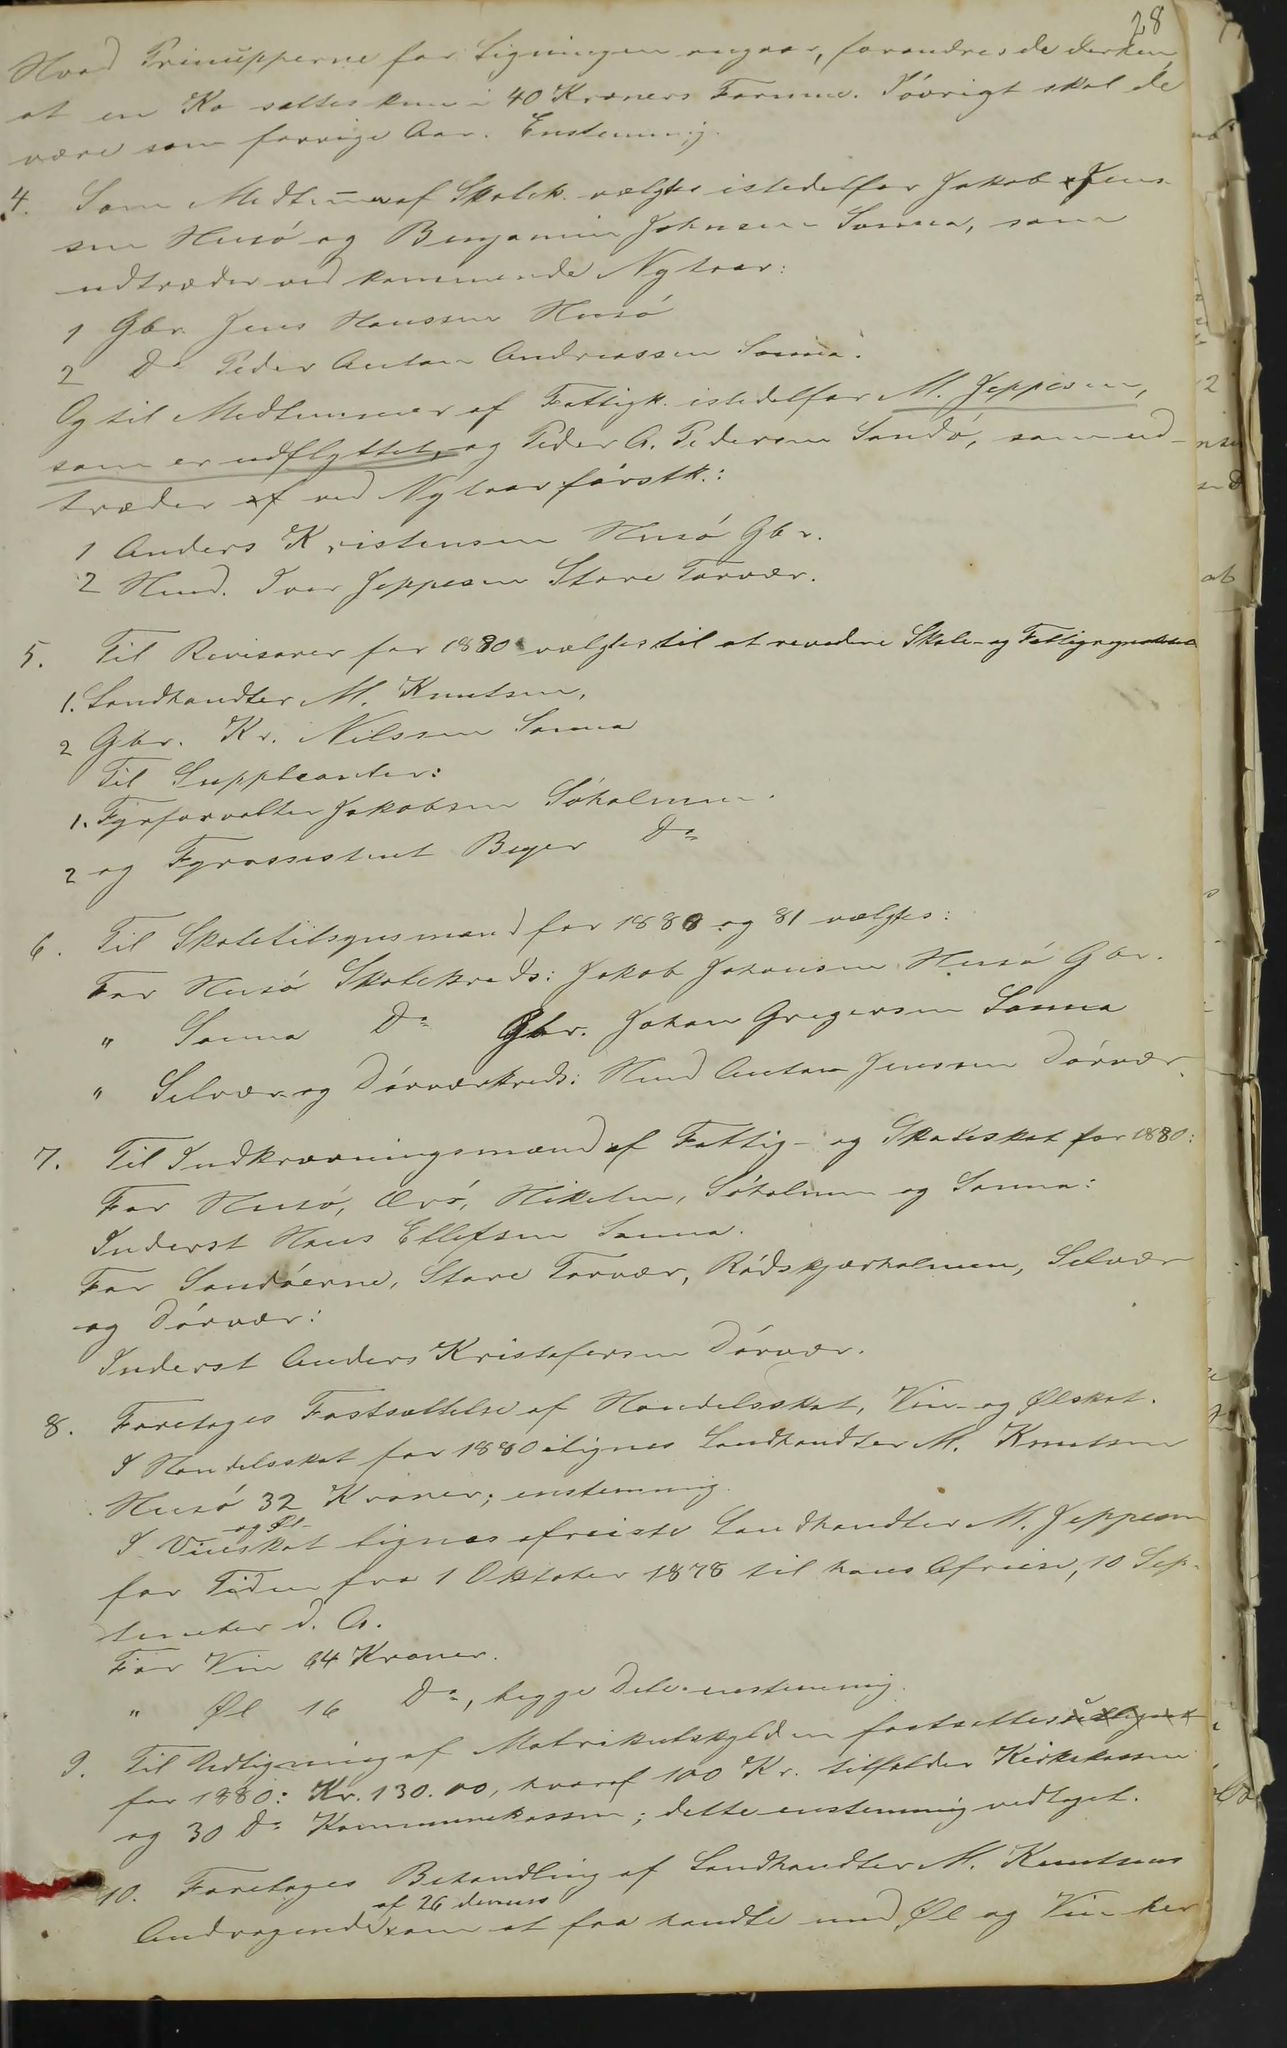 28
Hvad Principperne for Ligningen angaar, forandres de derhen,
at en Ko sættes kun i 40 Kroners Formue. Iøvrigt skal de
være som forrige Aar. Enstemmig.
4. Som Medlemmer af Skolek. vælgtes istedetfor Jakob Jens-
sen Husø og Benjamin Johnsen Sanna, som
udtræder ved kommende Nytaar:
1 Gbr. Jens Hanssen Husø
2 Do Peder Anton Andreassen Sanna.
Og til Medlemmer af Fattigk. istedetfor M. Jeppesen,
som er udflyttet, og Peder A. Pedersen Sandø, som ud-
træder af ved Nytaar førstk.:
1 Anders Kristensen Husø Gbr.
2 Hmd. Iver Jeppesen Store Torvær.
5. Til Revisorer for 1880 valgtes til at revidere Skole- og Fattigregnskabet
1. Landhandler M. Knutsen,
2 Gbr. Kr. Nilssen Sanna
Til Suppleanter:
1. Fyrforvalter Jakobsen Søholmen.
2 og Fyrassistent Beyer Do
6. Til Skoletilsynsmænd for 1880 og 81 vælgtes:
For Husø Skolekreds: Jakob Johansen Husø Gbr.
" Sanna Do Gbr. Johan Gregersen Sanna
" Selvær og Dørværkreds: Hmd Anton Jenssen Dørvær.
7. Til Indkrævningsmænd af Fattig- og Skoleskat for 1880:
For Husø, Øvø, Hikelen, Søholmen og Sanna:
Inderst Hans Ellefsen Sanna.
For Sandøerne, Store Torvær, Rødskjærholmen, Selvær
og Dørvær:
Inderst Anders Kristofersen Dørvær.
8. Foretoges Fastsættelse af Handelsskat, Vin- og Ølskat.
I Handelsskat for 1880 ilignes Landhandler M. Knutsen
Husø 32 Kroner; enstemmig.
og Øl-
I Vinskat lignes afreiste Landhandler M. Jeppesen
for Tiden fra 1 Oktober 1878 til hans Afreise, 10 Sep-
tember d. A.
For Vin 64 Kroner.
" Øl 16 Do, begge Dele enstemmig.
9. Til Udligning af Matrikulskylden fastsættes
for 1880: Kr. 130.00, hvoraf 100 Kr. tilfalder Kirkekassen
og 30 Do Kommunekassen; dette enstemmig vedtaget.
10. Foretoges Behandling af Landhandler M. Knutsens
af 26 dennes
Andragende om at faa handle med Øl og Vin her